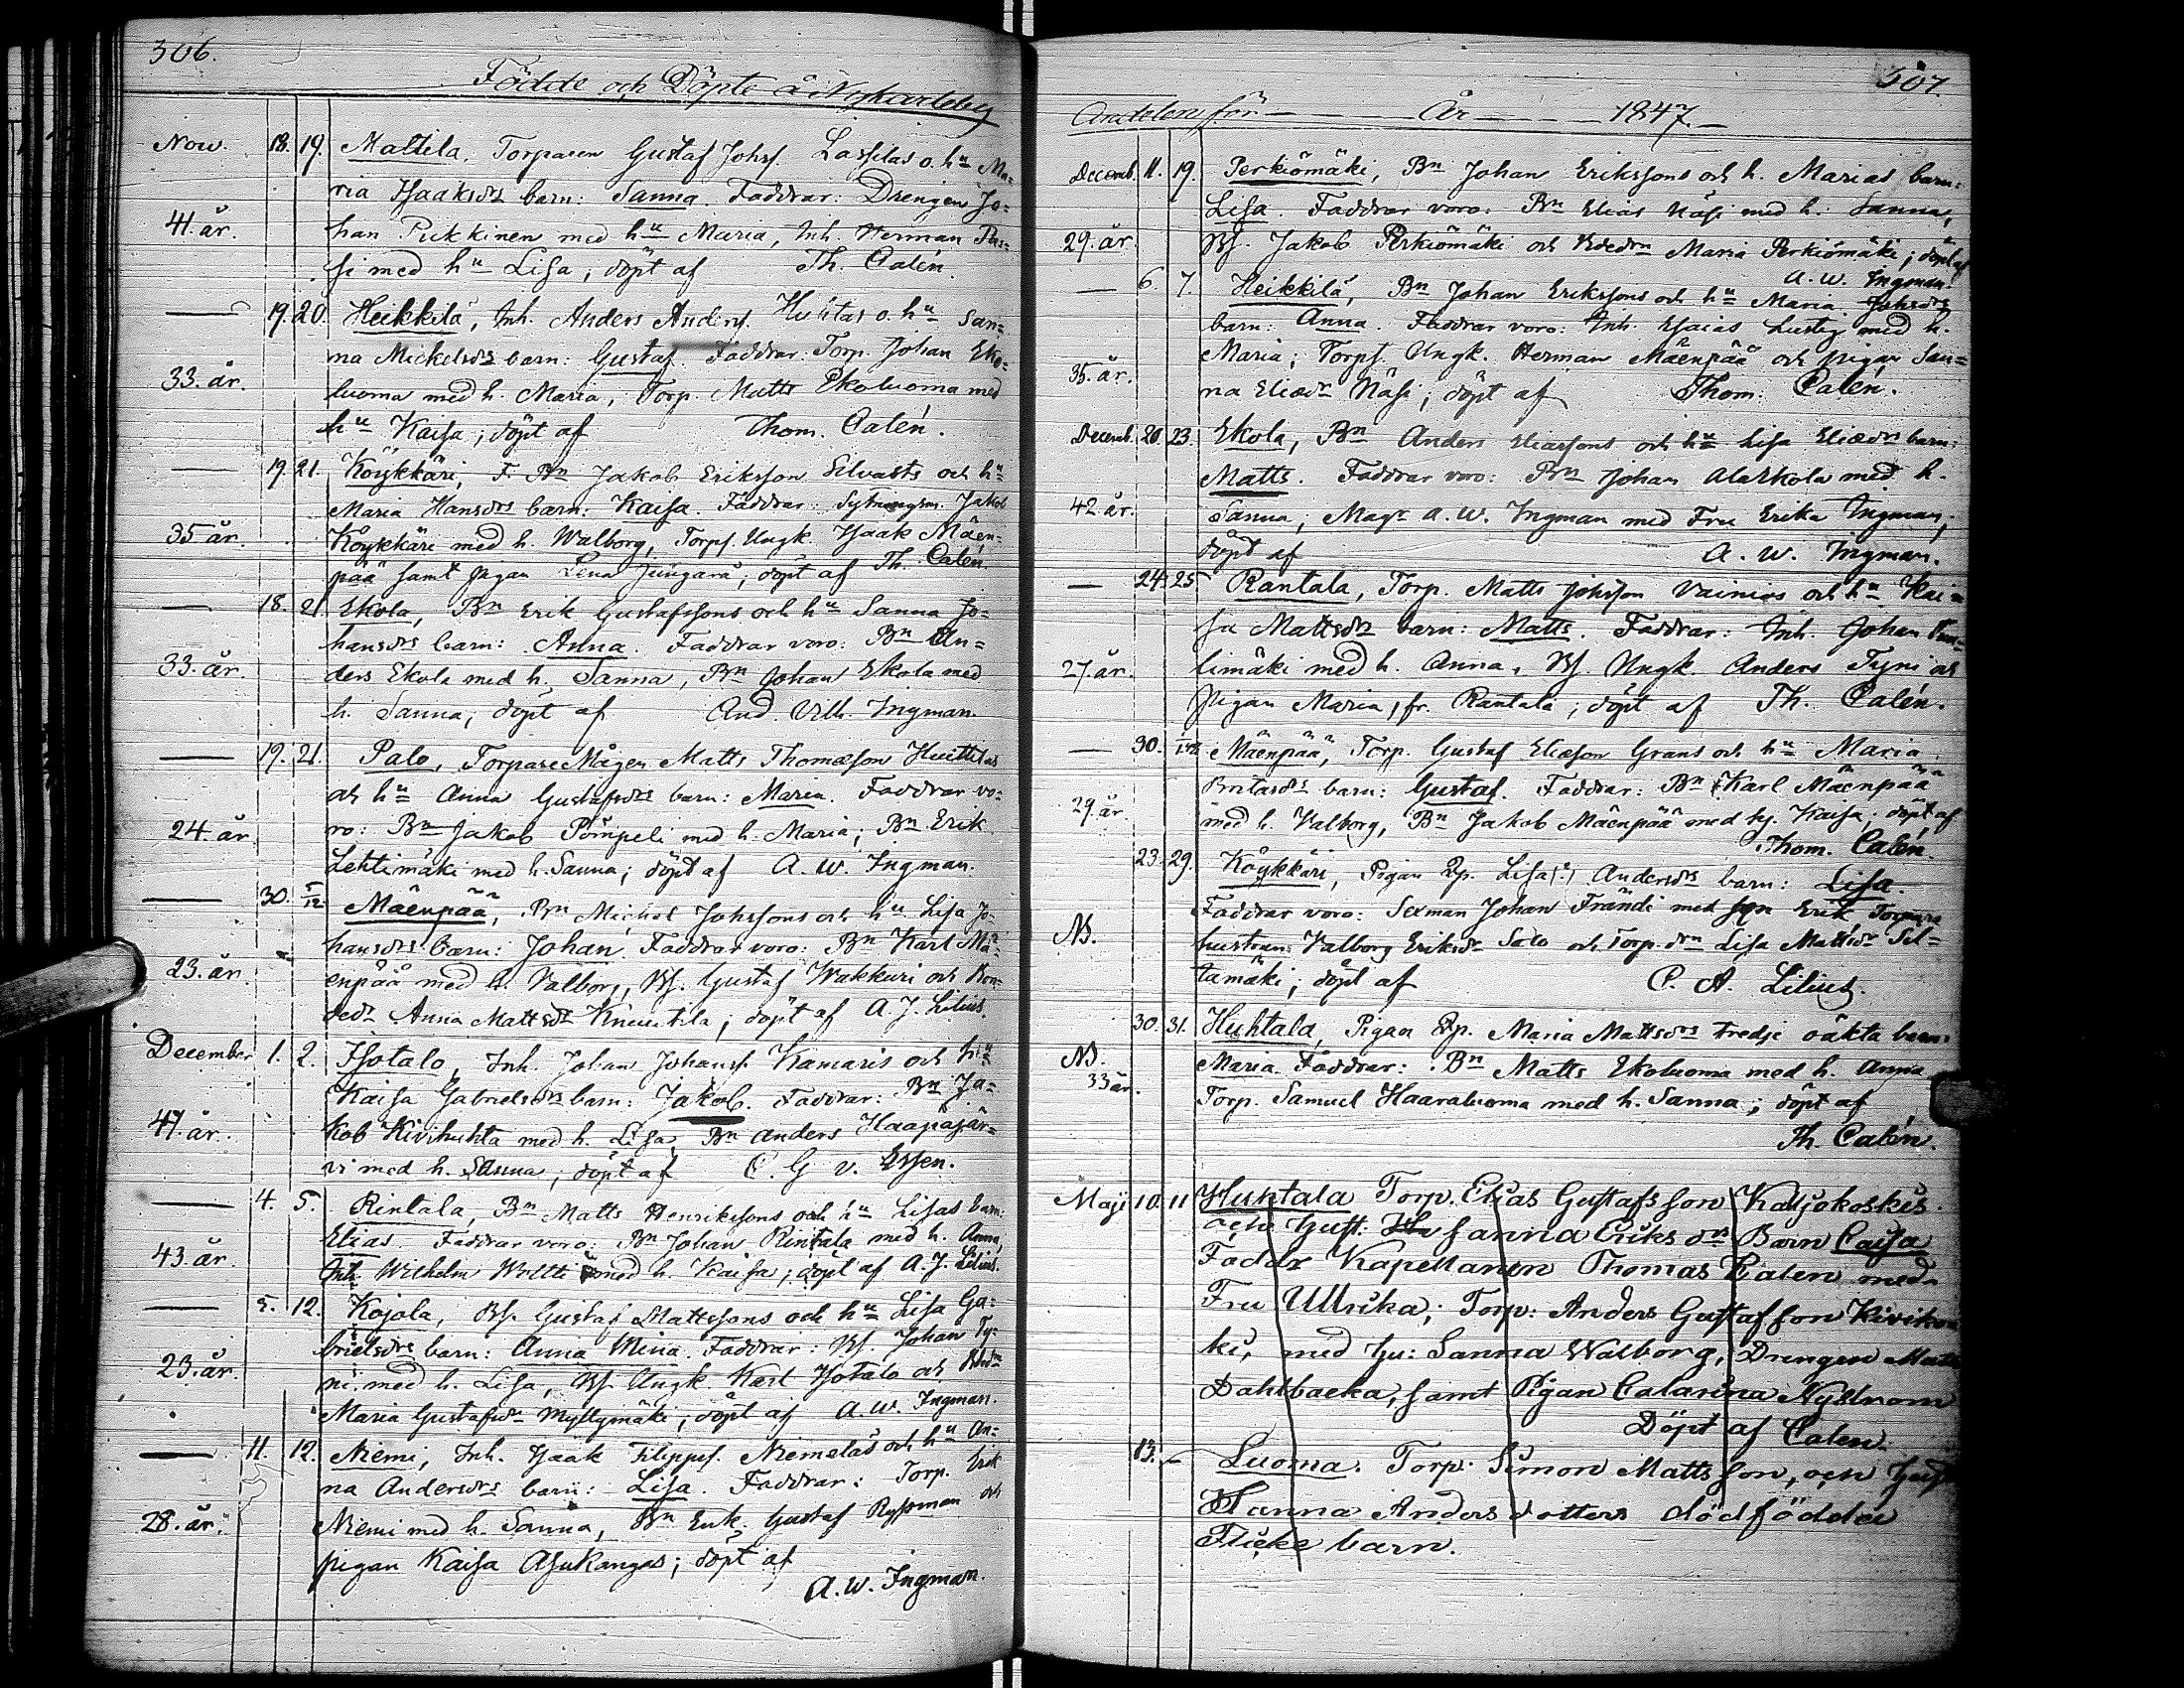 306.
Födde och Döpte å Nykarleby
Nov. 18. 19. Mattila, Torparen Gustaf Johsf. Lassilas o. hu Ma=
ria Isaksdrs barn: Sanna. Faddrar: Drengen Jo=
41. år. han Pukkinen med hu Maria, Inh. Herman Pas=
si med hu Lisa; döpt af Th. Calén.
— 19. 20. Heikkilä, Inh. Anders Andersf. Huhtas o. hu San=
na Mickelsdrs barn: Gustaf. Faddrar: Torp. Johan Eko=
33. år. luoma med h. Maria, Torp. Matts Ekoluoma med
hu Kaisa; döpt af Thom. Calén.
— 19. 21. Köykkäri, F. Bn Jakob Eriksson Silvasts och hu
Maria Hansdrs barn: Kaisa. Faddrar: Jakob
35 år. Köykkäri med h. Walborg, Torpf. Ungk. Isaak Mäen=
pää samt pigan Lena Jungarå; döpt af Th. Calén
— 18. 21. Ekola, Bn Erik Gustafssons och hu Sanna Jo=
hansdrs barn: Anna. Faddrar voro: Bn An=
33. år. ders Ekola med h. Sanna, Bn Johan Ekola med
h. Sanna; döpt af And. Vilh. Ingman.
— 19. 21. Palo, Torpare Mågen Matts Thomasson Huittilas
och hu Anna Gustafsdrs barn: Maria. Faddrar vo=
24. år. ro: Bn Jakob Pömpeli med h. Maria; Bn Erik
Lehtimäki med h. Sanna; döpt af A. W. Ingman.
— 30. 5/12 Mäenpää, Bn Michel Johssons och hu Lisa Jo=
hansdrs barn: Johan. Faddrar voro: Bn Karl Mä=
23. år. enpää med h. Valborg, Bf. Gustaf Wakkuri och Bon=
dedr Anna Mattsdr Knuutila; döpt af A. J. Lilius.
December 1. 2. Isotalo, Inh. Johan Johansf. Kamaris och hu
Kaisa Gabrielsdrs barn: Jakob. Faddrar: Bn Ja=
47. år. kob Kivihuhta med h. Lisa, Bn Anders Haapajär=
vi med h. Sanna; döpt af C. G v. Essen.
— 4. 5. Rintala, Bn Matts Henrikssons och hu Lisas barn:
Elias. Faddrar voro: Bn Johan Rintala med h. Anna,
43. år. Inh. Wilhelm Woltti med h. Kaisa; döpt af A. J. Lilius.
— 5. 12. Kojola, Bf. Gustaf Mattssons och hu Lisa Ga=
brielsdrs barn: Anna Mina. Faddrar: Bf. Johan Ty=
23. år. ni med h. Lisa, Bf. Ungk. Karl Isotalo och Bdedrn
Maria Gustafsdr Myllymäki; döpt af A. W. Ingman.
— 11. 12. Niemi, Inh. Isaak Filippsf. Niemeläs och hu An=
na Andersdrs barn: Lisa. Faddrar: Torp. Erik
28. år. Niemi med h. Sanna, Bn Enk. Gustaf Ryssman och
pigan Kaisa Asukangas; döpt af
A. W. Ingman.
307.
Andelen för — År — 1847. —
Decemb. 11. 19. Perkiömäki, Bn Johan Erikssons och h. Marias barn:
Lisa. Faddrar voro: Bn Elias Näsi med h. Sanna,
29. år. Bf. Jakob Perkiömäki och Bdedrn Maria Perkiömäki; döpt af
A. W. Ingman.
— 6. 7. Heikkilä, Bn Johan Erikssons och hu Maria Johsdrs
barn: Anna. Faddrar voro: Inh. Esaias Lustig med h.
35. år. Maria; Torpf. Ungk. Herman Mäenpää och pigan San=
na Eliædr Näsi; döpt af Thom. Calén.
Decemb. 20. 23. Ekola, Bn Anders Eliassons och hu Lisa Eliædrs barn:
Matts. Faddrar voro: Bn Johan AlaEkola med h.
42 år. Sanna; Magr A. W. Ingman med Fru Erika Ingman;
döpt af A. W. Ingman.
— 24. 25 Rantala, Torp. Matts Johsson Vainios och hu Kai=
sa Mattsdrs barn: Matts. Faddrar: Inh. Johan
27. år. limäki med h. Anna, Bf. Ungk. Anders Tyni och
pigan Maria, fr. Rantala; döpt af Th. Calén.
— 30. Mäenpää, Torp. Gustaf Eliæson Grans och hu Maria
29. år. barn: Gustaf. Faddrar: Bn Karl Mäenpää
med h. Valborg, Bn Jakob Mäenpää med hj. Kaisa; döpt af
Thom. Calén.
23. 29. Köykkäri, Pigan Lisa Andersdrs barn: Lisa.
Faddrar voro: Sexman Johan Frändi med son Erik Torpare
hustrun Valborg Eriksdr Salo och Torp. drn Lisa Mattsdr Sil=
tamäki; döpt af C. A. Lilius.
30. 31. Huhtala, Pigan Maria Mattsdrs tredje oäkta barn:
33 år. Maria. Faddrar: Bn Matts Ekoluoma med h. Anna
Torp. Samuel Haaraluoma med h. Sanna; döpt af
Th. Calén.
Maji 10. 11 Huhtala Torp. Elias Gustafsson Katjokoskis
och Hust. Sanna Eriks dr Barn Caisa
Faddr Kapellanen Thomas Calen med
Fru Ullrika; Torp: Anders Gustafsson Kivikos
ki, med Hu: Sanna Walborg, Drengen Matts
Dahlbacka, samt Pigan Catarina Nystrom
Döpt af Calen.
13. — Luoma. Torp. Simon Mattsson, och Hust
Hanna Anders dotters dödfödda
Flicke barn.